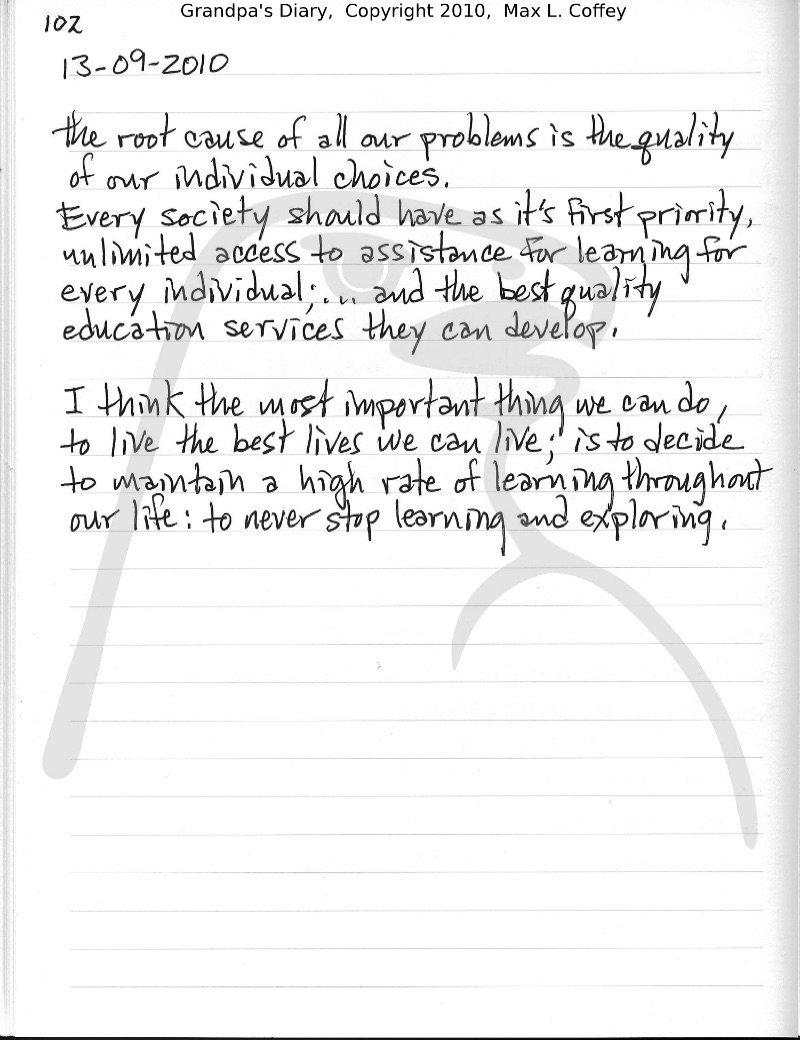 Grandpa's Diary, Copyright 2010, Max L. Coffey
102
13-09-2010
the root cause of all our problems is the quality
of our individual choices.
Every society should have as it's first priority,
unlimited access to assistance for learning for
every individual;... and the best quality
education services they can develop.
I think the most important thing we can do,
to live the best lives we can live; is to decide
to maintain a high rate of learning throughout
our life: to never stop learning and exploring.